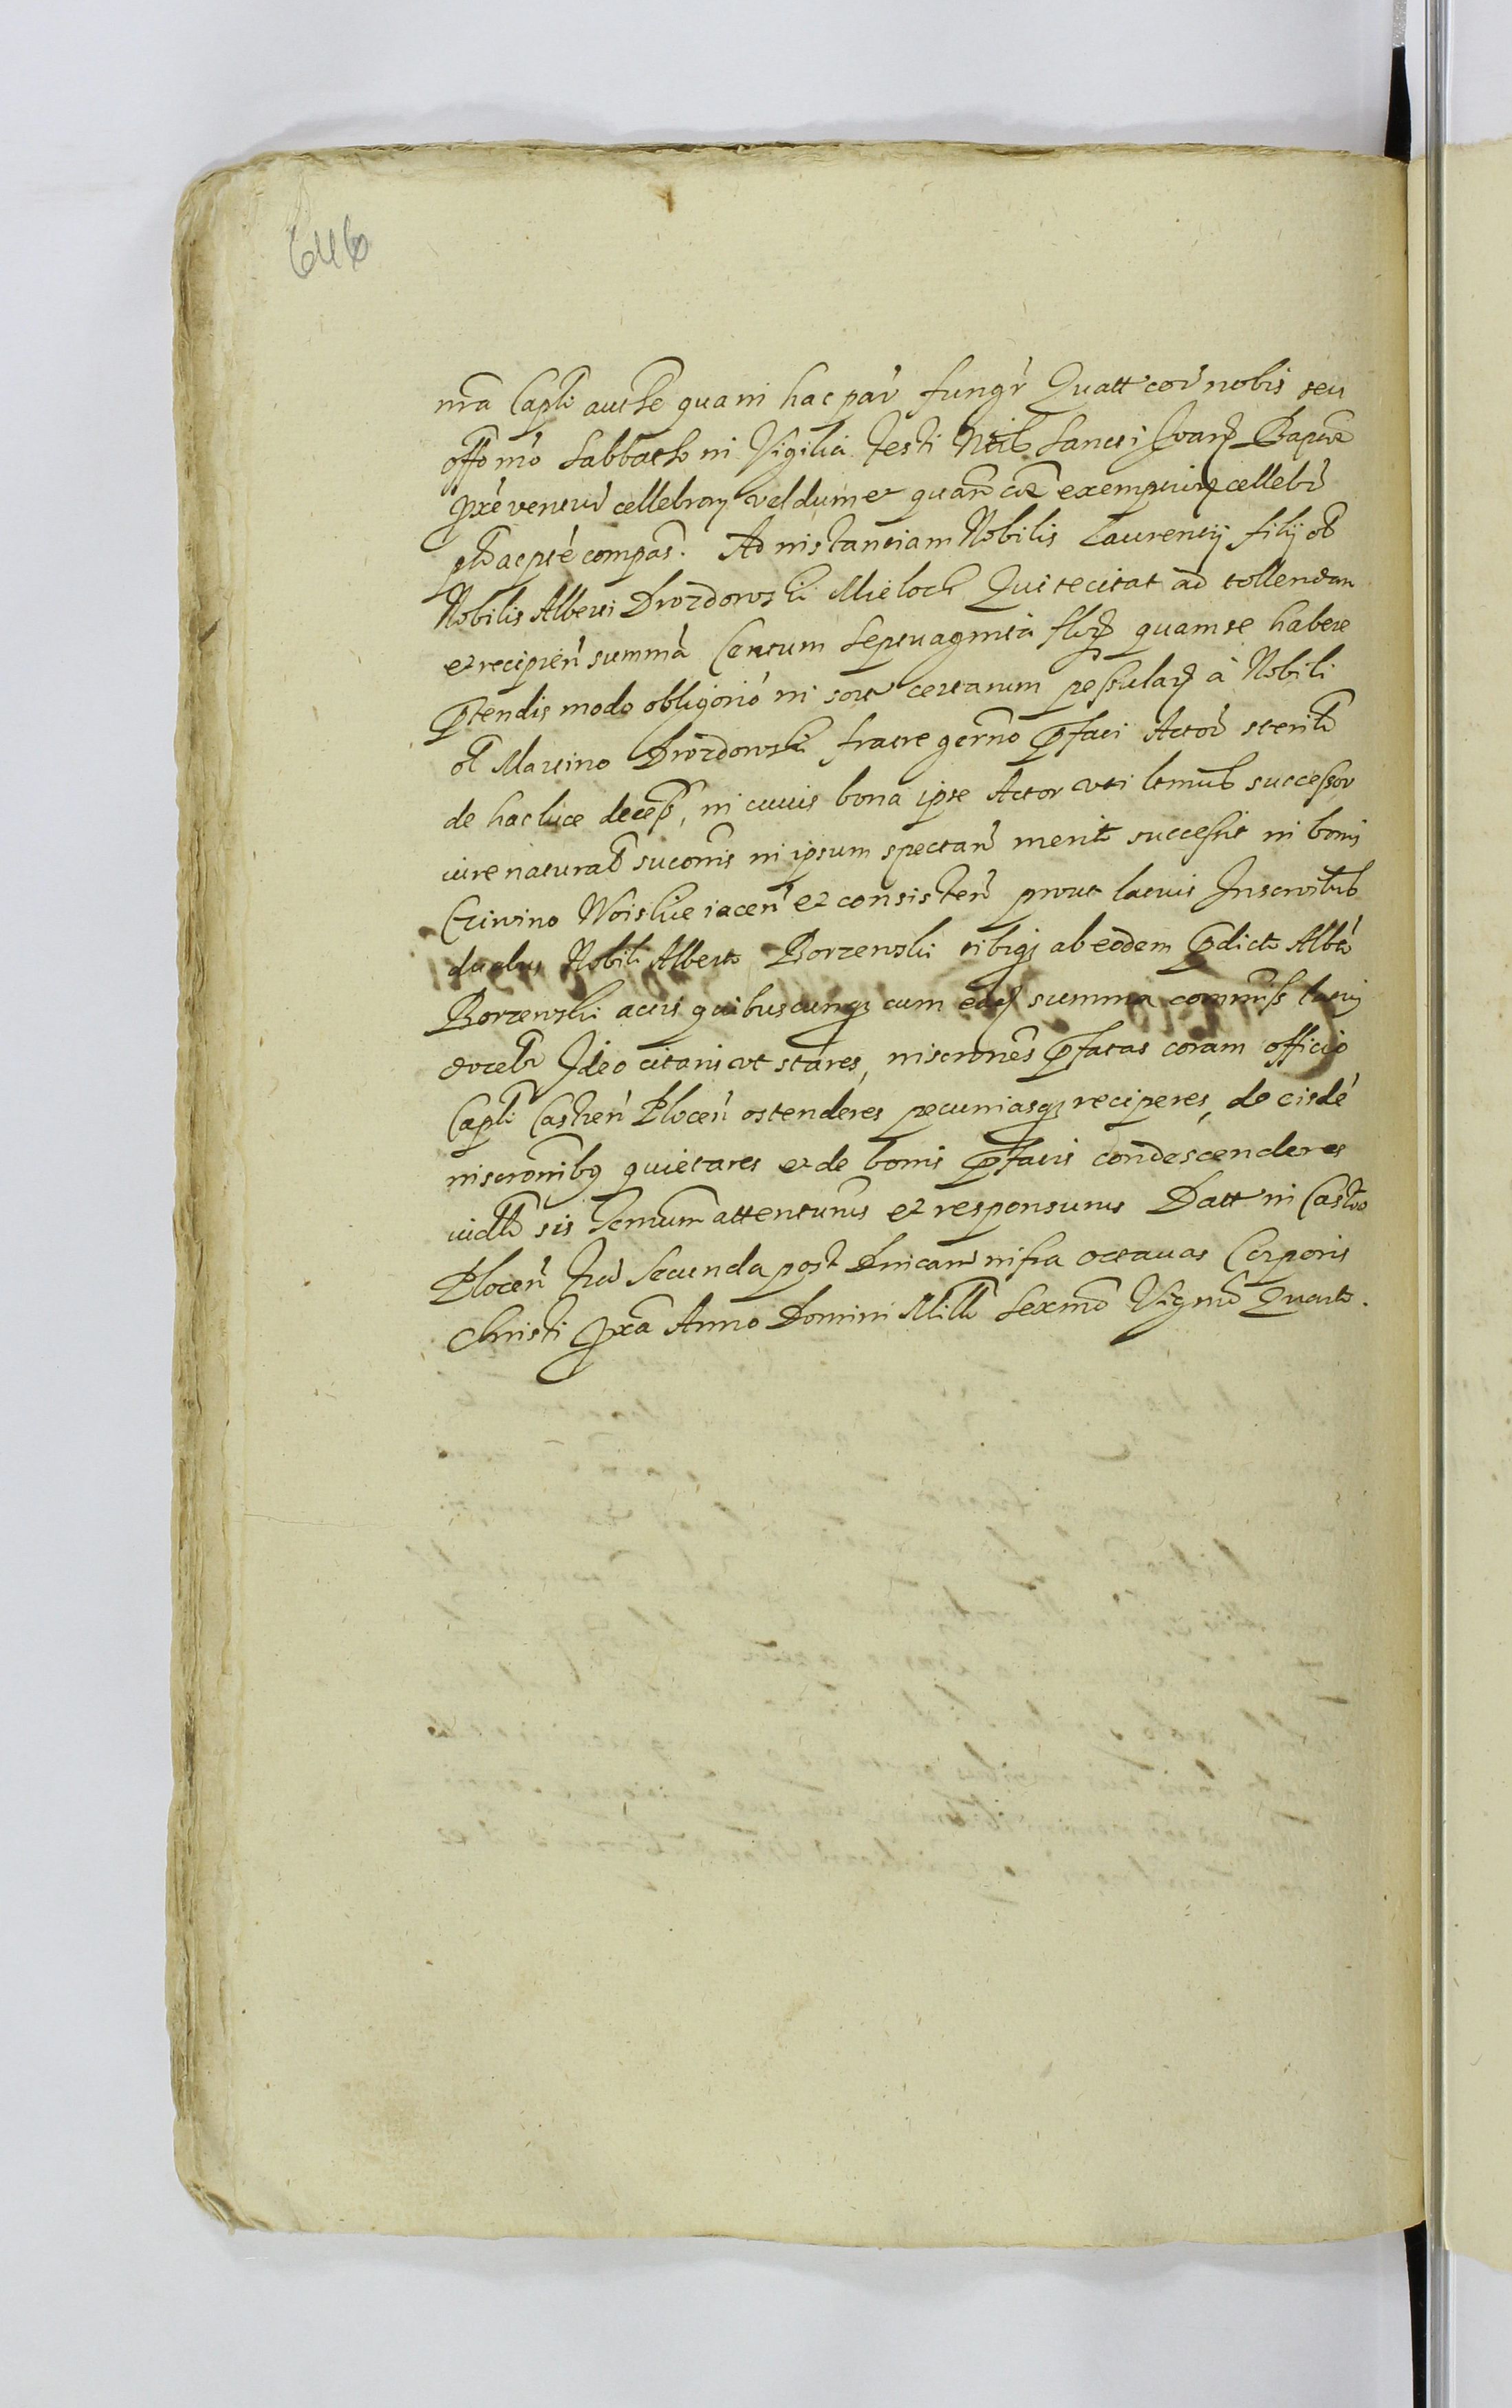 646
nra Capli authe qua in hac par fungr Quatt cor nobis seu
offo nro Sabbatho in Vigilia Festi Sancti Joan Bapta
pxe ventur cellebran vel dum et quan cae exemptury cellebr
pltr ac pte compas. Ad instantiam Nobilis Laurentij filij ol
Nobilis Alberti Drozdowski Mieloch Qui te citat ad tollendam
et recipien summa Centum Septuaginta flor quam te habere
ptendis modo obligorio in sorte certarum a Nobili
ol Martino Drozdowski fratre germo pfati Actor sterili
de hac luce decess, in cuius bona ipse Actor uti ltmus successor
iure naturali succonis in ipsum spectan merito successit in bonis
iacen et consisten prout latius Inscroibus
duabus Nobili Alberto Borzewski tibiq ab eodem pdicto Albto
Borzewski actis quibuscunq cum ead summa commiss latius
docebr Ideo citaris ut stares, inscrones pfatas coram officio
Capli Castren Plocen ostenderes pecuniasq reciperes, de eisde
inscronibq quietares et de bonis pfatis condescenderes
iudlr sis Termum attenturus et responsurus Datt in Castro
Plocen Fer Secunda post Dnicam infra octauas Corporis
Christi pxa Anno Domini Mille Sexmo Vigmo Quarto.